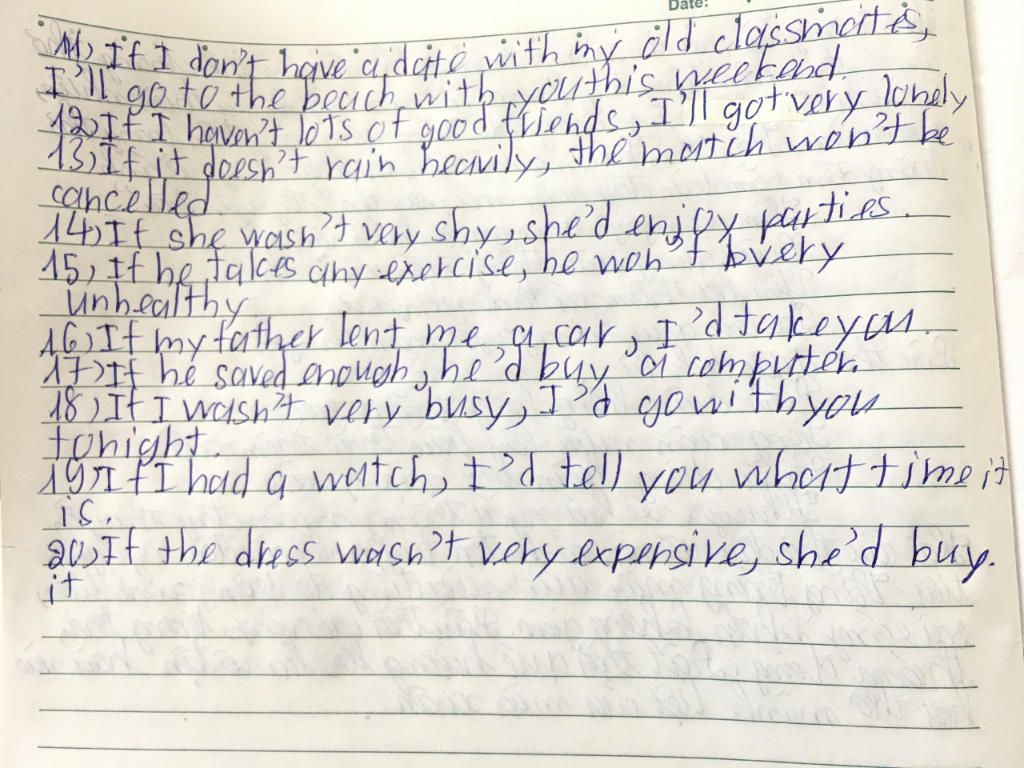 Date:
11) If I don't have a date with my old classmates,
I'll go to the beach with you this weekend.
12) If I haven't lots of good friends, I'll got very lonely
13) If it doesn't rain heavily, the match won't be
cancelled.
14) If she wasn't very shy, she'd enjoy parties.
15) If he takes any exercise, he won't bvery
unhealthy
16) If my father lent me a car, I'd take you.
17) If he saved enough, he'd buy a computer.
18) If I wasn't very busy, I'd go with you
tonight.
19) If I had a watch, I'd tell you what time it
is.
20) If the dress wasn't very expensive, she'd buy.
it